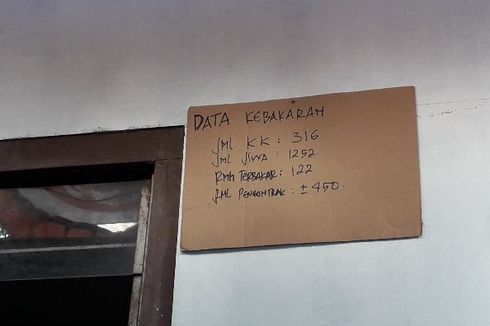 DATA KEBAKARAN
JML KK : 316.
JML JIWA : 1252.
RMH TERBAKAR : 122
JML PENGONTRAK : ± 450.